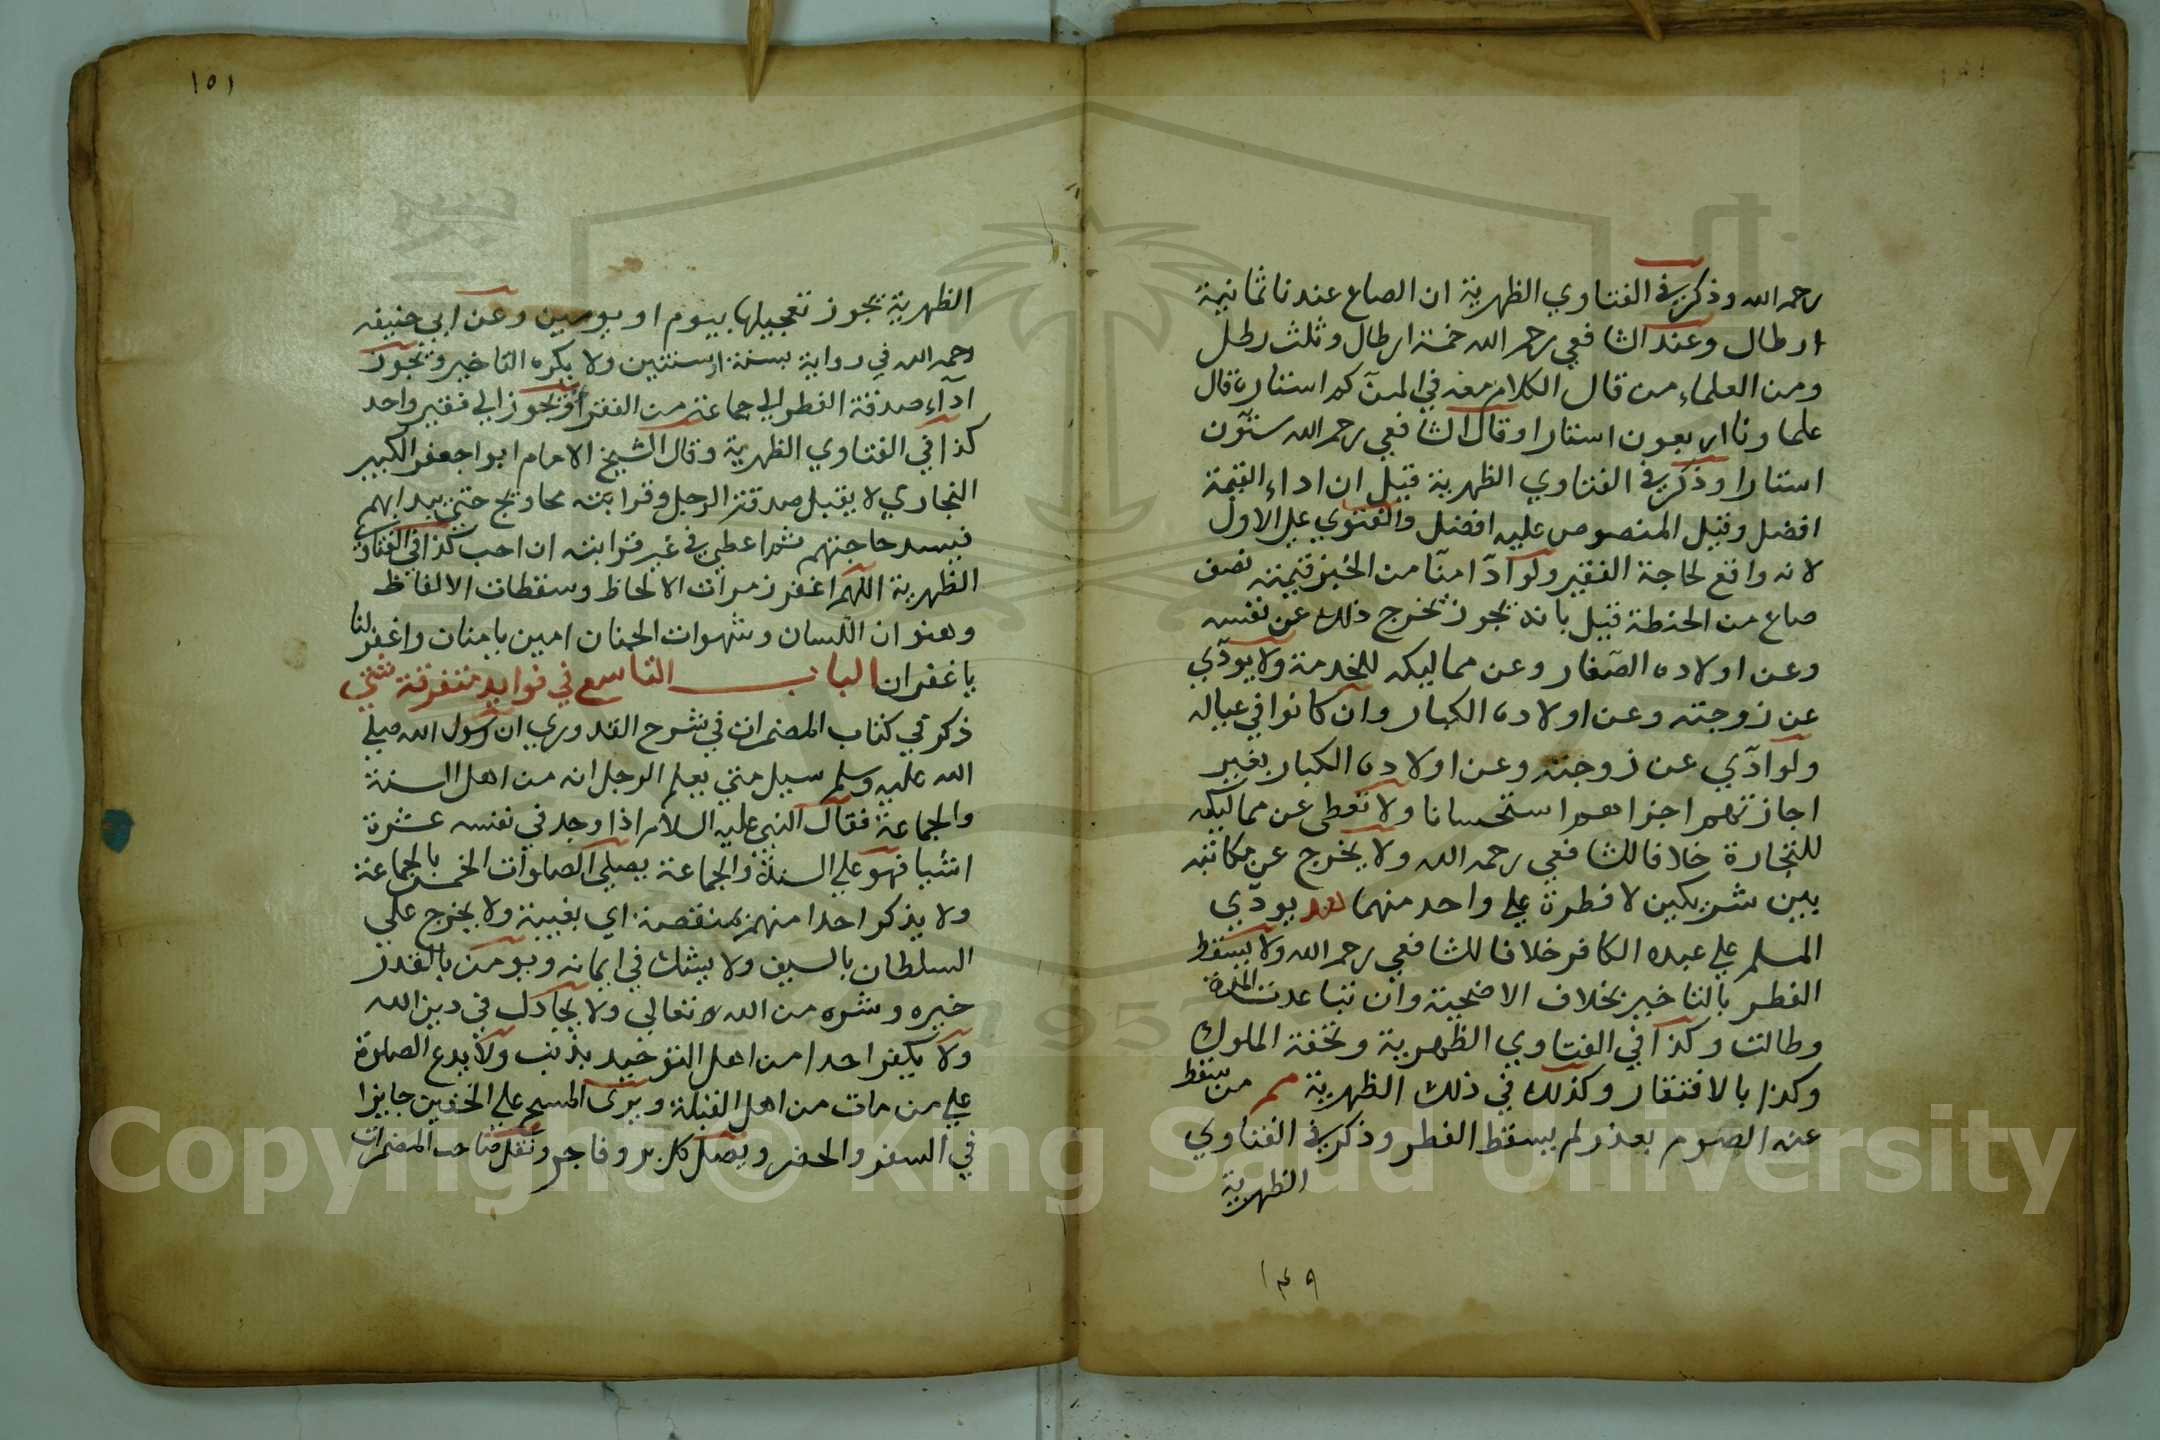 رحمه الله وذكر في الفتاوي الظهرية ان الصاع عندنا ثمانية
ارطال وعند الشافعي رحمه الله خمسة ارطال وثلث رطل
ومن العلماء من قال الكلام معه في المن كم استار قال
علماونا اربعون استارا وقال الشافعي رحمه الله ستون
استارا وذكر في الفتاوي الظهرية قيل ان اداء القيمة
افضل وقيل المنصوص عليه افضل والفتوي علي الاول
لانه وافع لحاجة الفقير ولو ادا منا من الخبز قيمته نصف
صاع من الحنطة قيل بانه يجوز يخرج ذلك عن نفسه
وعن اولاده الصغار وعن مماليكه للخدمة ولا يودي
عن زوجته وعن اولاده الكبار وان كانوا في عياله
ولو ادي عن زوجته وعن اولاده الكبار بغير
اجازتهم اجزاهم استحسانا ولا تعطى عن مماليكه
للتجارة خلافا للشافعي رحمه الله ولا يخرج عن مكاتبه
بين شريكين لا فطرة علي واحد منهما يودي
المسلم علي عبده الكافر خلافا للشافعي رحمه الله ولا يسقط
الفطر بالتاخير بخلاف الاضحية وان تباعدت المدة
وطالت وكذا في الفتاوي الظهرية وتحفة الملوك
وكذا بالافتقار وكذلك في ذلك الظهرية من سقط
عنه الصوم بعذر لم يسقط الفطر وذكر في الفتاوي
الظهرية
١٤٩
١٥١
الظهرية يجوز تعجيلها بيوم او يومين وعن ابي حنيفه
رحمه الله في رواية بسنة او سنتين ولا يكره التاخير وتجوز
اداء صدقة الفطر الي جماعة من الفقرا ويجوز الي فقير واحد
كذا في الفتاوي الظهرية وقال الشيخ الامام ابوا جعفر الكبير
النجاري لا يقبل صدقة الرجل وقرابته محاويج حتي يبدا بهم
فيسد حاجتهم ثم اعطي في غير قرابته ان احب كذا في الفتاوي
الظهرية اللهم اغفر زمرات الالحاظ وسقطات الالفاظ
وهنوان اللسان وشهوات الجنان امين يامنان واغفر لنا
ياغفران البـــاب التاسع في فوايد متفرقة شتي
ذكر في كتاب المضمرات في شرح القدوري ان رسول الله صلي
الله عليه وسلم سيل متي يعلم الرجل انه من اهل السنة
والجماعة فقال النبي عليه السلام اذا وجد في نفسه عشرة
اشيا فهو علي السنة والجماعة يصلي الصلوات الخمس بالجماعة
ولا يذكر احدا منهم بمنقصة اي بغيبة ولا يخرج علي
السلطان بالسيف ولا يشك في ايمانه ويومن بالقدر
خيره وشره من الله تعالي ولا يجادل في دين الله
ولا يكفر احدا من اهل التوحيد بذنب ولا يدع الصلوة
علي من مات من اهل القبلة ويرى المسح علي الخفين جايزا
في السفر والحضر ويصل كل بر وفاجر ونقل صاحب المضمرات